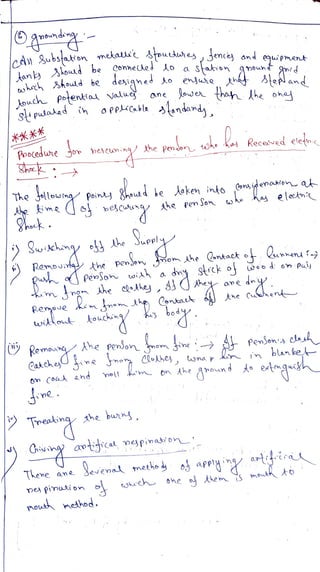 ⑥ grounding :-
All Substation metallic structures, fences and equipment
tanks should be connected to a station ground grid
which should be designed to ensure that step and
touch potential values are lower than the ones
stipulated in applicable standards,
****
Procedure for rescuing the person who has Received electric
Shock : →
The following points should be taken into consideration at
the time of rescuring the person who has electric
Shock.
i) Switching off the Supply
ii) Removing the person from the Contact of Current :→
Push person with a dry stick of wood on pull
him from the clothes, If they are dry.
Remove him from the Contact of the current
without touching his body.
iii) Removing the person from fire :→ If Person's cloth
catches fire from clothes, wrap him in blanket
on coat and roll him on the ground to extinguish
fire.
iv) Treating the burns.
v) Giving artifical respiration :
There are several methods of applying artificial
respiration of which one of them is mouth to
mouth method.